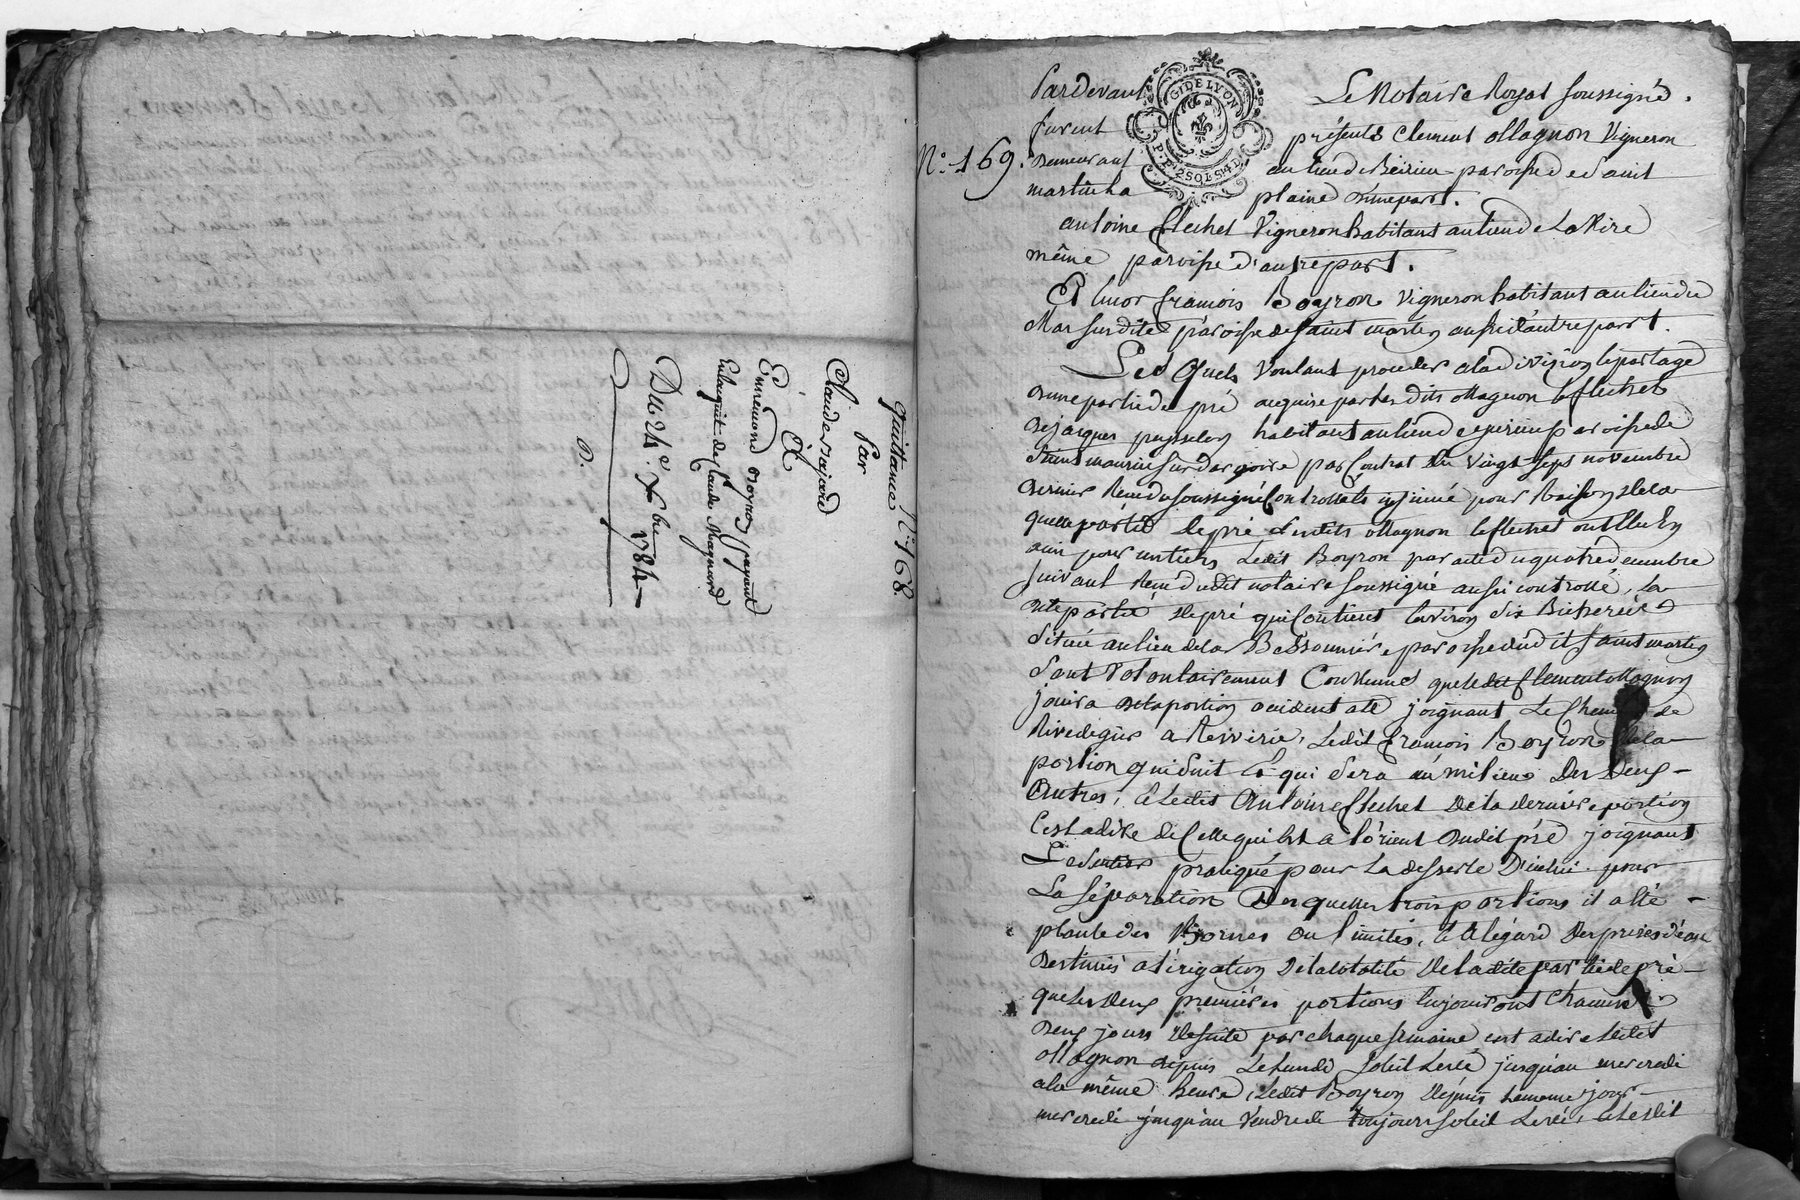 quittance N.° 168.
Par
Claude
Et
Enremond
payant
En l'acquit de Claude Magnard
Du 24.e Xbre 1784
N.° 169.
GI DE LYON
P. P. 2 SOLS 4 D.
Pardevant Le Notaire Royal soussigné.
furent présents Clement ollagnon Vigneron
demeurant au lieu de paroisse de saint
martin la plaine d'une part.
antoine flechet Vigneron habitant au lieu de La Rire
même paroisse d'autre part.
Et Sieur françois Boyron Vigneron habitant au lieu du
Mas susdite paroisse de saint martin aussi d'autre part.
Les Quels Voulant proceder a la division et partage
d'une partie de pré acquise par les dits ollagnon et flechet
de jacques habitant au lieu de paroisse de
saint maurice sur dargoire par Contrat du vingt sept novembre
dernier Recu du soussigné Controllé et insinué pour Raison de la
quelle partie de pré lesdits ollagnon et flechet ont Elu En
ami pour un tiers Ledit Boyron par acte du quatre decembre
suivant Recu dudit notaire soussigné aussi controllé, La
dite partie de pré qui Contient Environ six Bicherées
située au lieu de la Bessonniere paroisse dudit saint martin
sont Volontairement Convenus que ledit Clement ollagnon
jouira de la portion occidentale joignant Le Chemin de
Rivedegier a Riverie, Ledit francois Boyron de la
portion qui suit Et qui sera au milieu Des Deux
Autres, Et Ledit Antoine flechet De la derniere portion
C'est a dire de Celle qui Est a l'orient dudit pré joignant
Le sentier pratiqué pour La desserte D'icelui. pour
La séparation Des quelles trois portions il a été
planté des Bornes ou limites, Et a l'égard Des prises d'eau
destinés a l'irigation De la totalité De la dite partie de pré
que les deux premières portions En jouiront Chacune
deux jours De suite par chaque semaine c'est a dire Ledit
ollagnon depuis Le Lundi soleil Levé jusqu'au mercredi
a la même heure, Ledit Boyron Depuis Le meme jour
mercredi jusqu'au Vendredi toujours soleil Levé, et Ledit